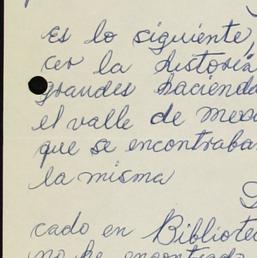 es lo siguiente,
cer la historia
grandes hacienda
el valle de mexi
que se encontraba
la misma
cado en Bibliote
no he encontrado